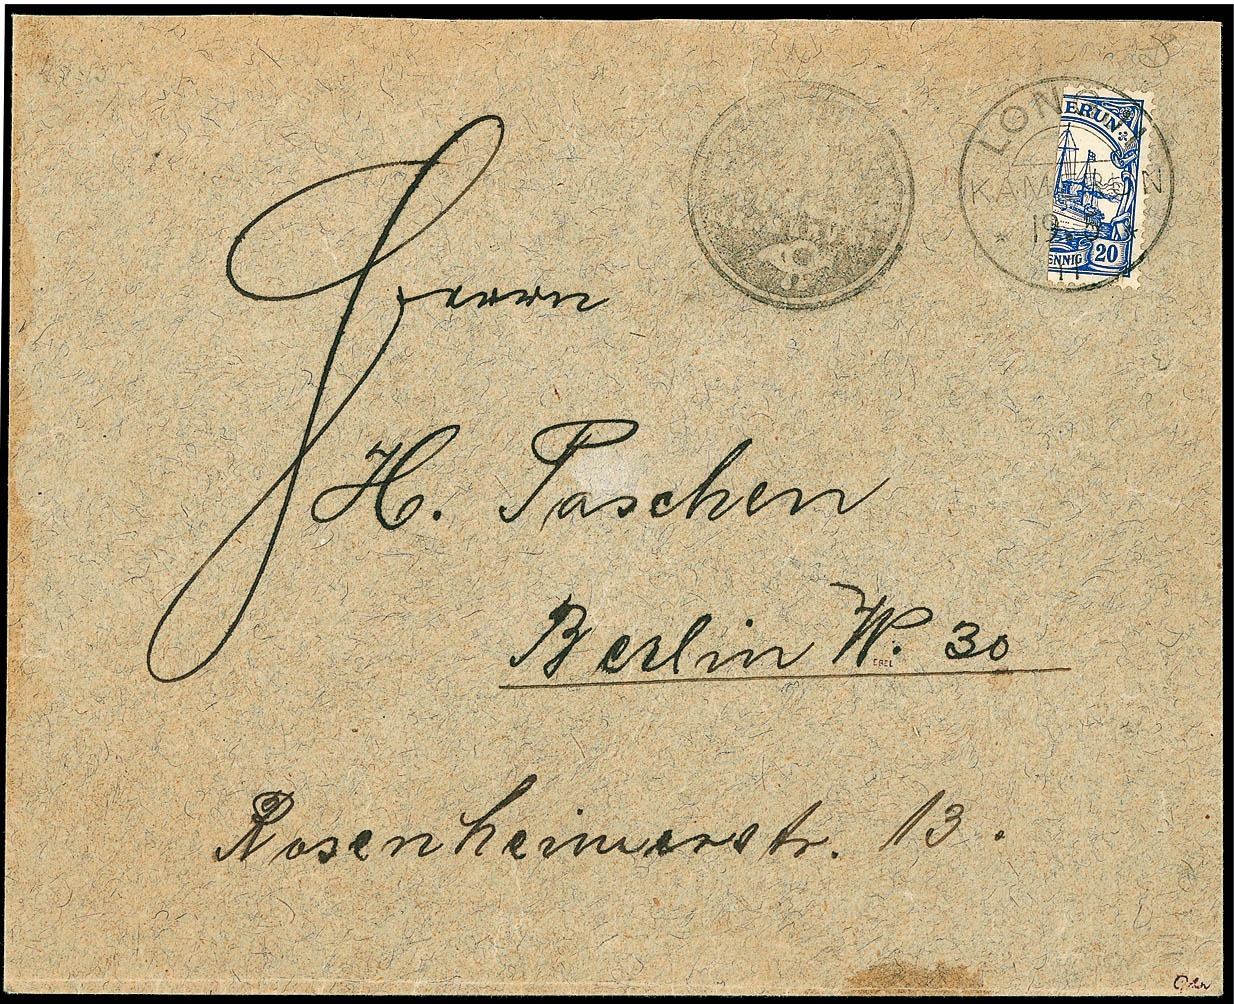 LONGJI
KAMERUN
19.5
11
ERUN
ENNIG 20
Herrn
H. Paschen
Berlin W. 30
EBEL
Rosenheimerstr. 13.